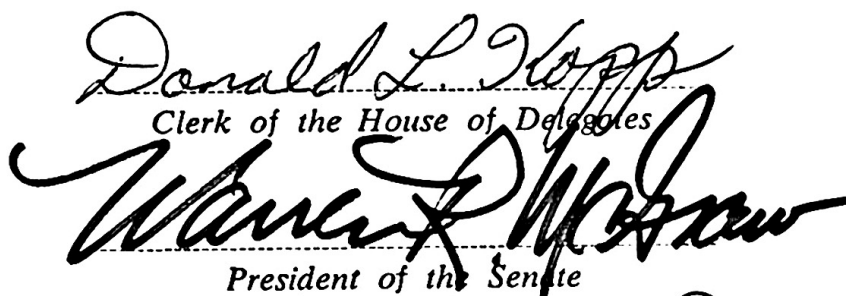 Donald L. Kopp
Clerk of the House of Delegates
Warren R. McGraw
President of the Senate